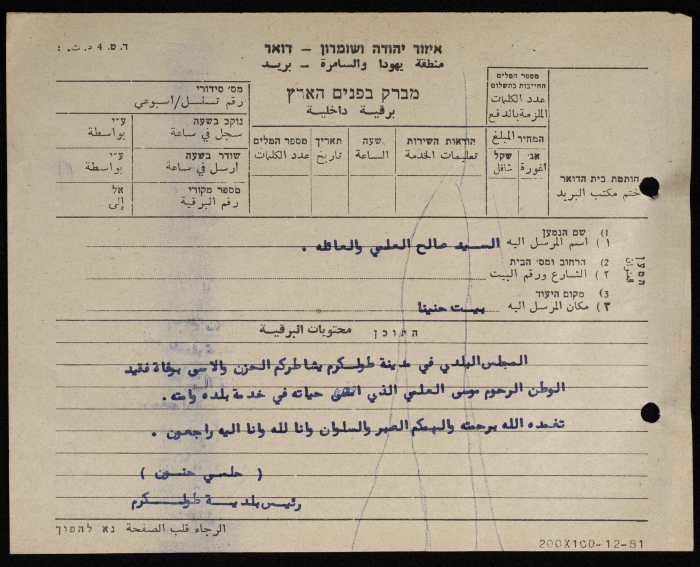 ד.ס. 4 ד.ת.
איזור יהודה ושומרון - דואר
منطقة يهودا والسامرة - بريد
מברק בפנים הארץ
برقية داخلية
מספר המלים
החייבות בתשלום
عدد الكلمات
الملزمة بالدفع
המחיר المبلغ
אג׳ שקל
اغورة شاقل
מס׳ סידורי
رقم تسلسل/اسبوعي
נוקב בשעה ע״י
سجل في ساعة بواسطة
שודר בשעה ע״י
ارسل في ساعة بواسطة
מספר מקורי אל
رقم البرقية إلى
מספר המלים תאריך שעה הוראות השירות
عدد الكلمات تاريخ الساعة تعليمات الخدمة
חותמת בית הדואר
ختم مكتب البريد
המען
العنوان
1) שם הנמען
١) اسم المرسل اليه السيد صالح العلمي والعائله .
2) הרחוב ומס׳ הבית
٢) الشارع ورقم البيت
3) מקום היעוד
٣) مكان المرسل اليه بيت حنينا
התוכן محتويات البرقية
المجلس البلدي في مدينة طولكرم يشاطركم الحزن والاسى بوفاة فقيد
الوطن المرحوم موسى العلمي الذي حياته في خدمة بلده وامته .
تغمده الله برحمته والهمكم الصبر والسلوان وانا لله وانا اليه راجعون .
( حلمي حنون )
رئيس بلدية طولكرم
الرجاء قلب الصفحة נא להפוך
200X100-12-81